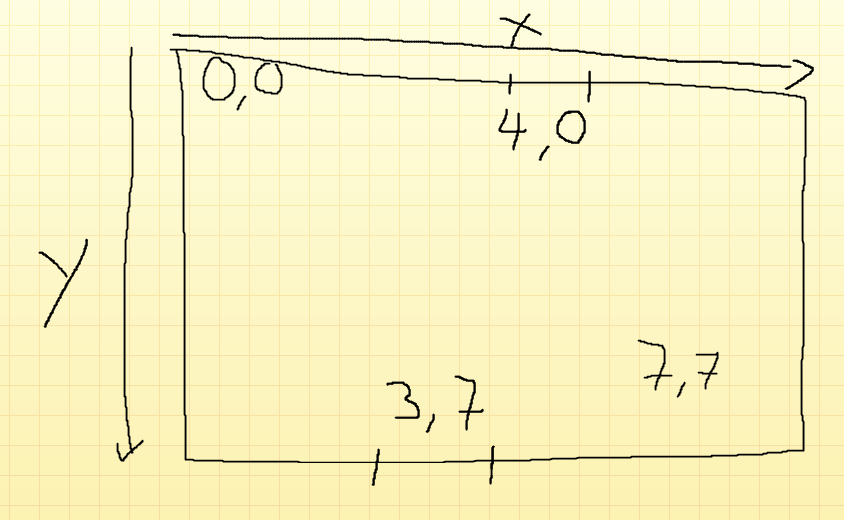 x
0,0
4,0
y
3,7
7,7